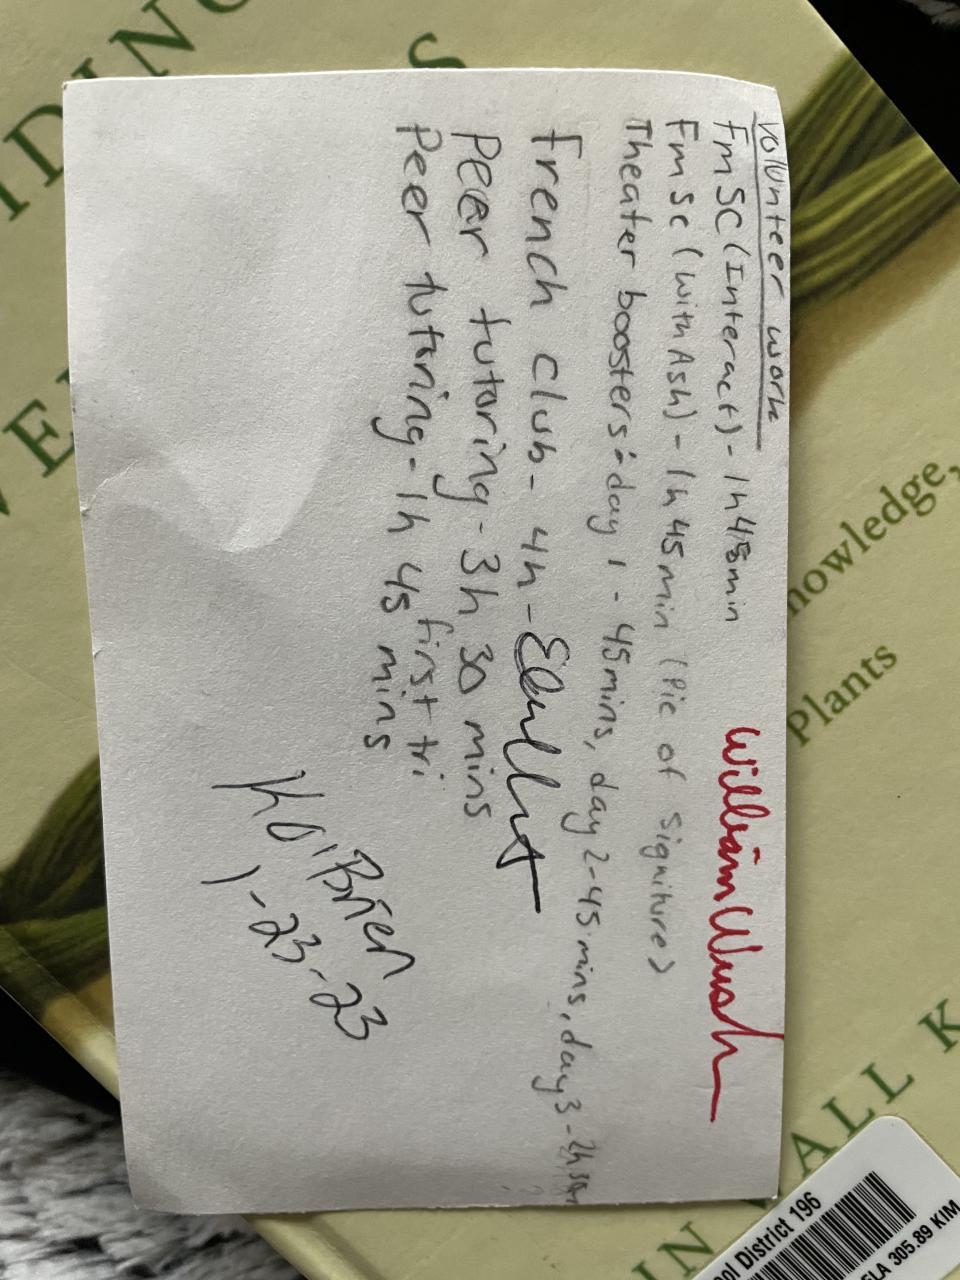 Volunteer work
FmSC (Interact) - 1h 45min
FmSc (with Ash) - 1h 45 min (Pic of signiture)
Theater boosters: day 1 - 45 mins, day 2 - 45 mins, day 3 - 2h
French club - 4h -
Peer tutoring - 3h 30 mins
first tri
Peer tutoring - 1h 45 mins
K O'Brien
1-23-23
William
DING
VE
nowledge,
Plants
ALL K
IN
ool District 196
ELA 305.89 KIM